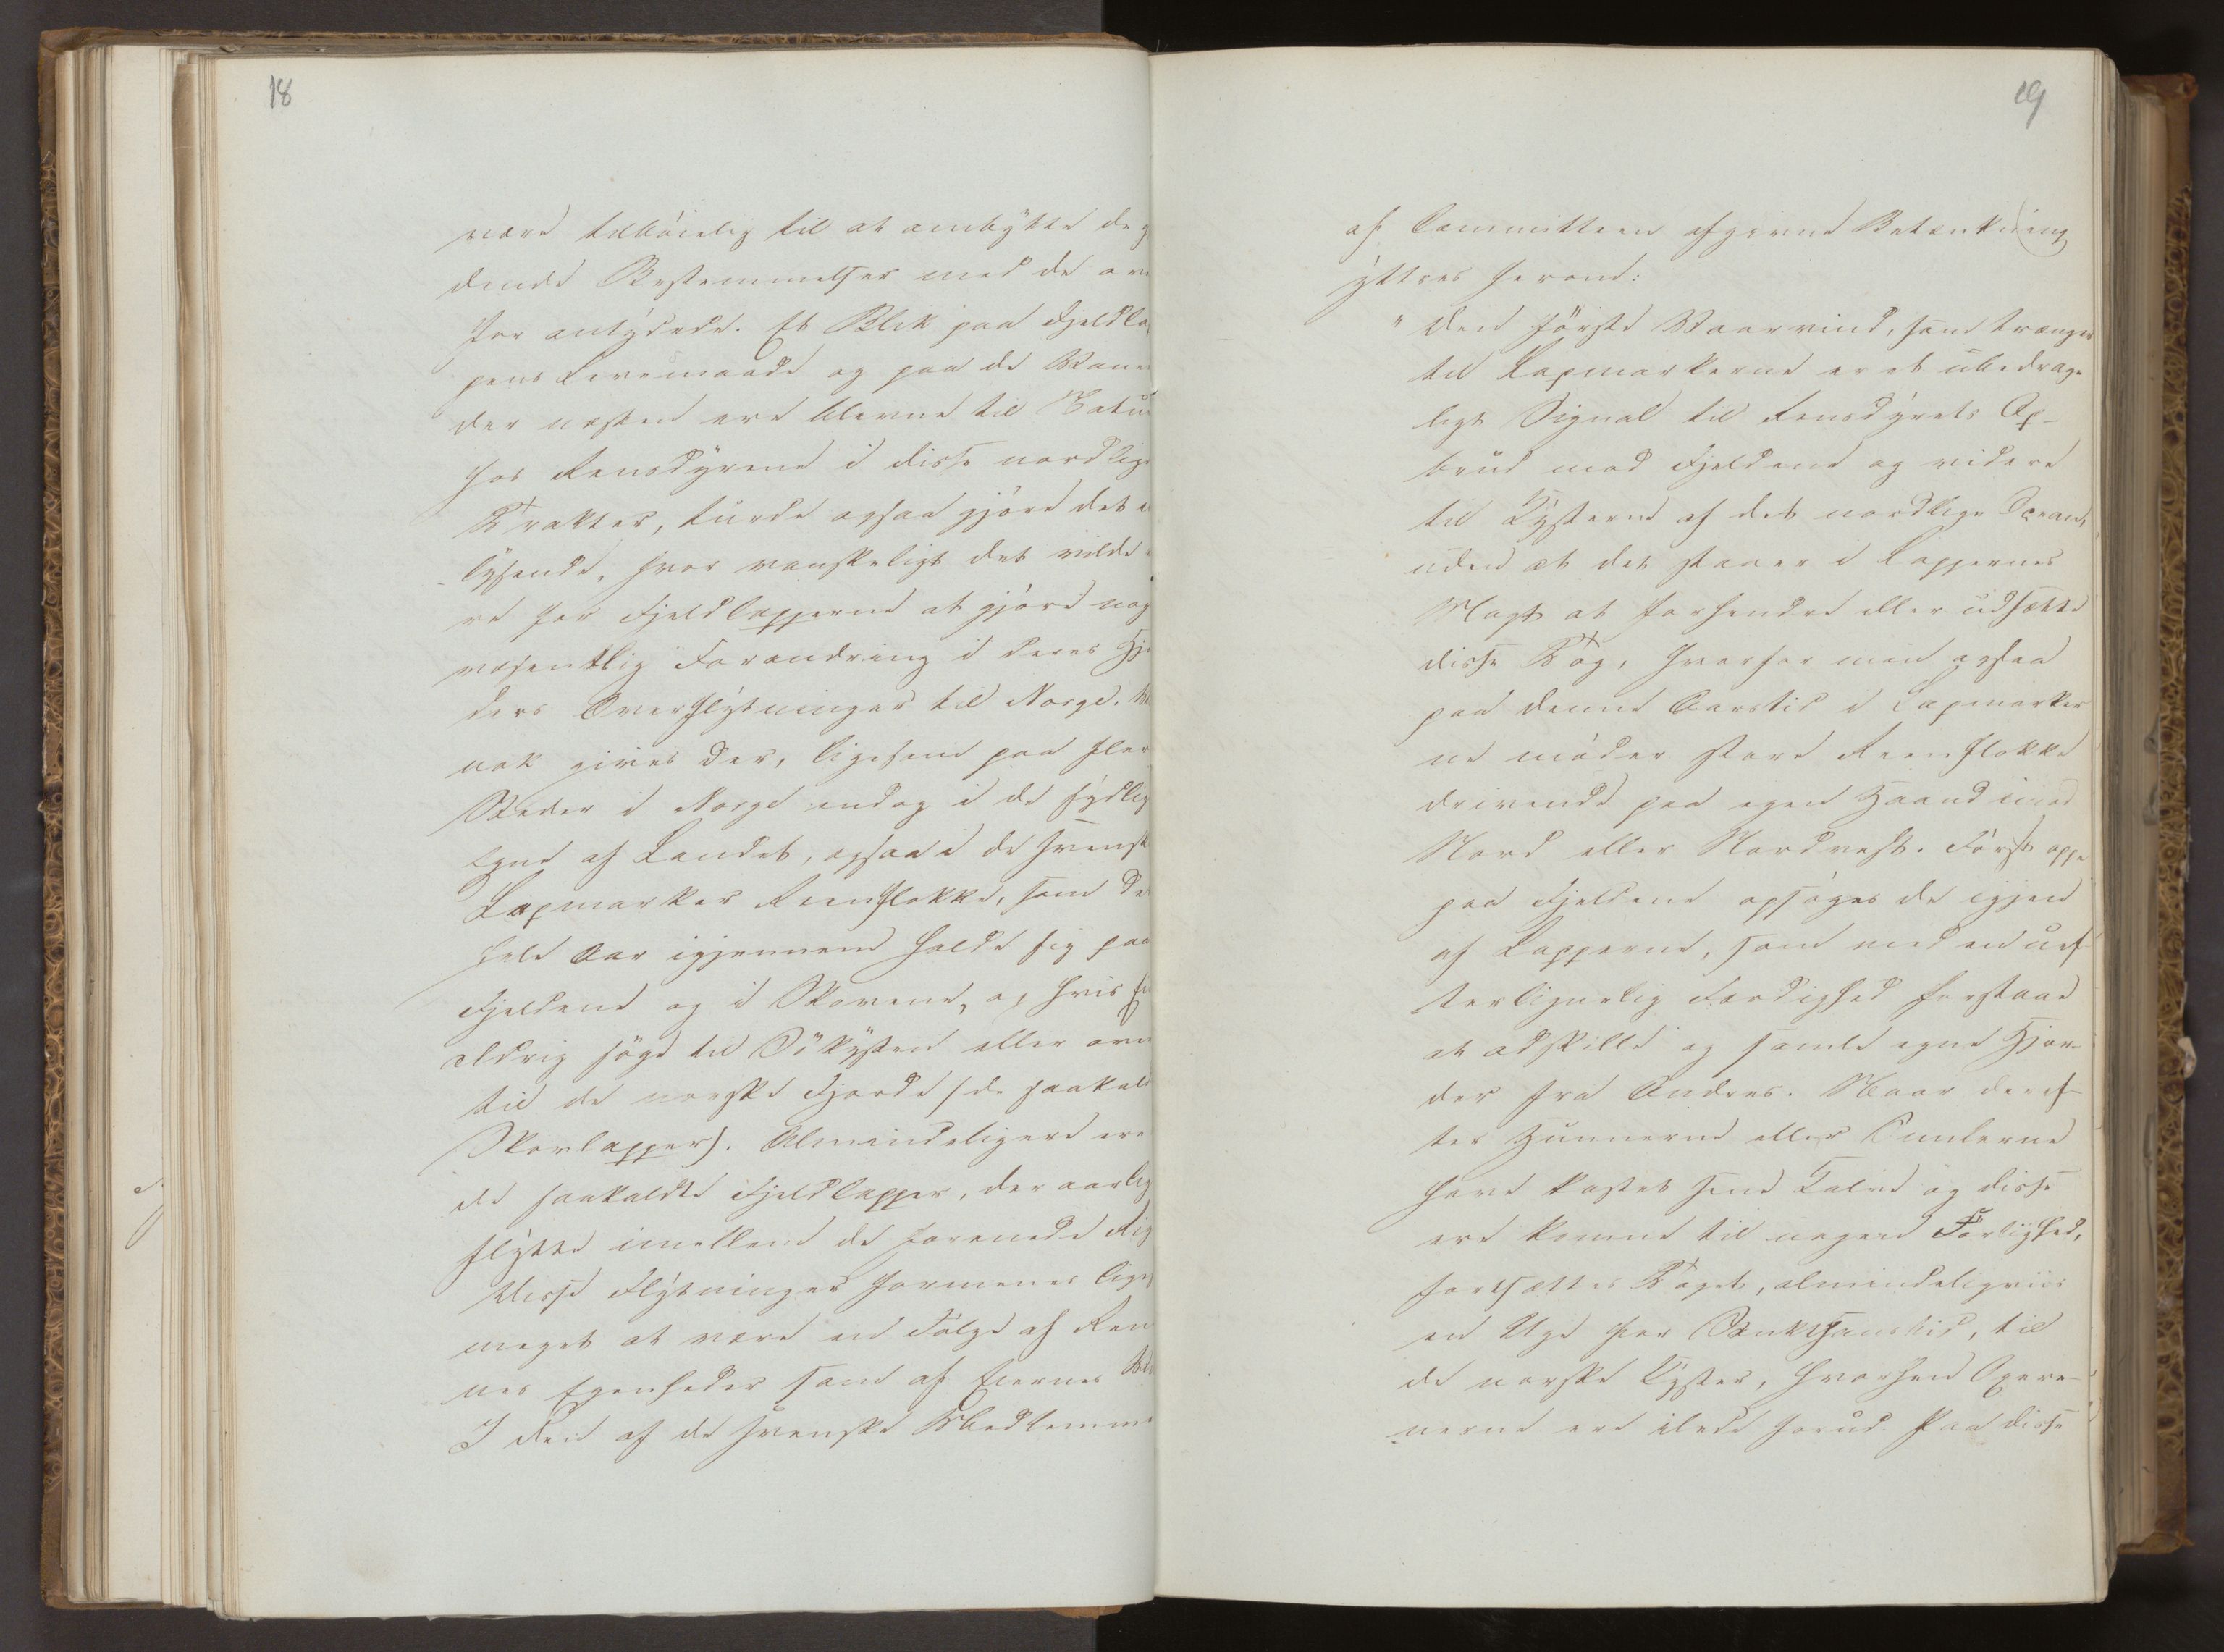 18
være tilbøielig til at ombytte de g
dende Bestemmelser med de ove
for antydede. Et Blik paa Fjeldla
pens Levemaade og paa de Vaner
der næsten ere blevne til Natu
hos Rensdyrene i disse nordlige
Trakter, turde ogsaa gjøre det
lysende, hvor vanskeligt det vilde
re for Fjeldlapperne at gjøre nog
væsentlig Forandring i deres Hjo
ders Overflytninger til Norge.
nok gives der, ligesom paa fler
Steder i Norge endog i de sydlig
Egne af Landet, ogsaa i de svensk
Lapmarker Reenflokke, som De
hele Aar igjennem holde sig paa
Fjeldene og i Skovene, og hvis
aldrig søge til Søkysten eller ove
til de norske Fjorde (de saakald
Skovlapper). Almindeligere ere
de saakaldte Fjeldlapper, der aarlig
flytte imellem de forenede Rig
Disse Flytninger formenes lige
meget at være en Følge af Ren
nes Egenheder som af Eiernes
I den af de svenske Medlemme
19
af Committeen afgivne Betænkning
yttres herom:
" Den første Vaarvind, som trænger
til Lapmarkerne er et ubedrage
ligt Signal til Rensdyrets Op-
brud mod Fjeldene og videre
til Kysterne af det nordlige Ocean,
uden at det staaer i Lappernes
Magt at forhindre eller udsætte
disse Tog, hvorfor man ogsaa
paa denne Aarstid i Lapmarker
ne møder store Reenflokke
drivende paa egen Haand imod
Nord eller Nordvest. Først oppe
paa Fjeldene opsøges de igjen
af Lapperne, som med en uef
terlignelig Færdighed forstaae
at adskille og samle egne Hjor-
der fra Andres. Naar deref-
ter Hunnerne eller Simlerne
have kastet sine Kalve og disse
ere komne til nogen Førlighed,
fortsættes Toget, almindeligviis
en Uge før Sankthanstid, til
de norske Kyster, hvorhen Oxere-
nerne ere ilede forud. Paa disse